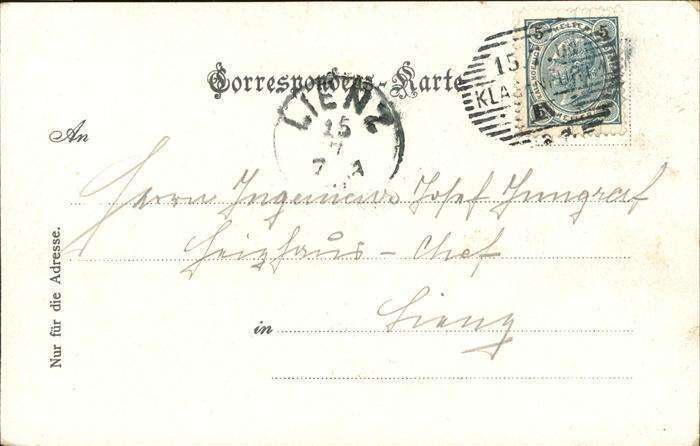 Correspondenz-Karte
5 5
15
KLA
LIENZ
15
7
7 A
An
Herrn Ingenieur Josef Jungraf
Heizhaus-Chef
in Lienz
Nur für die Adresse.